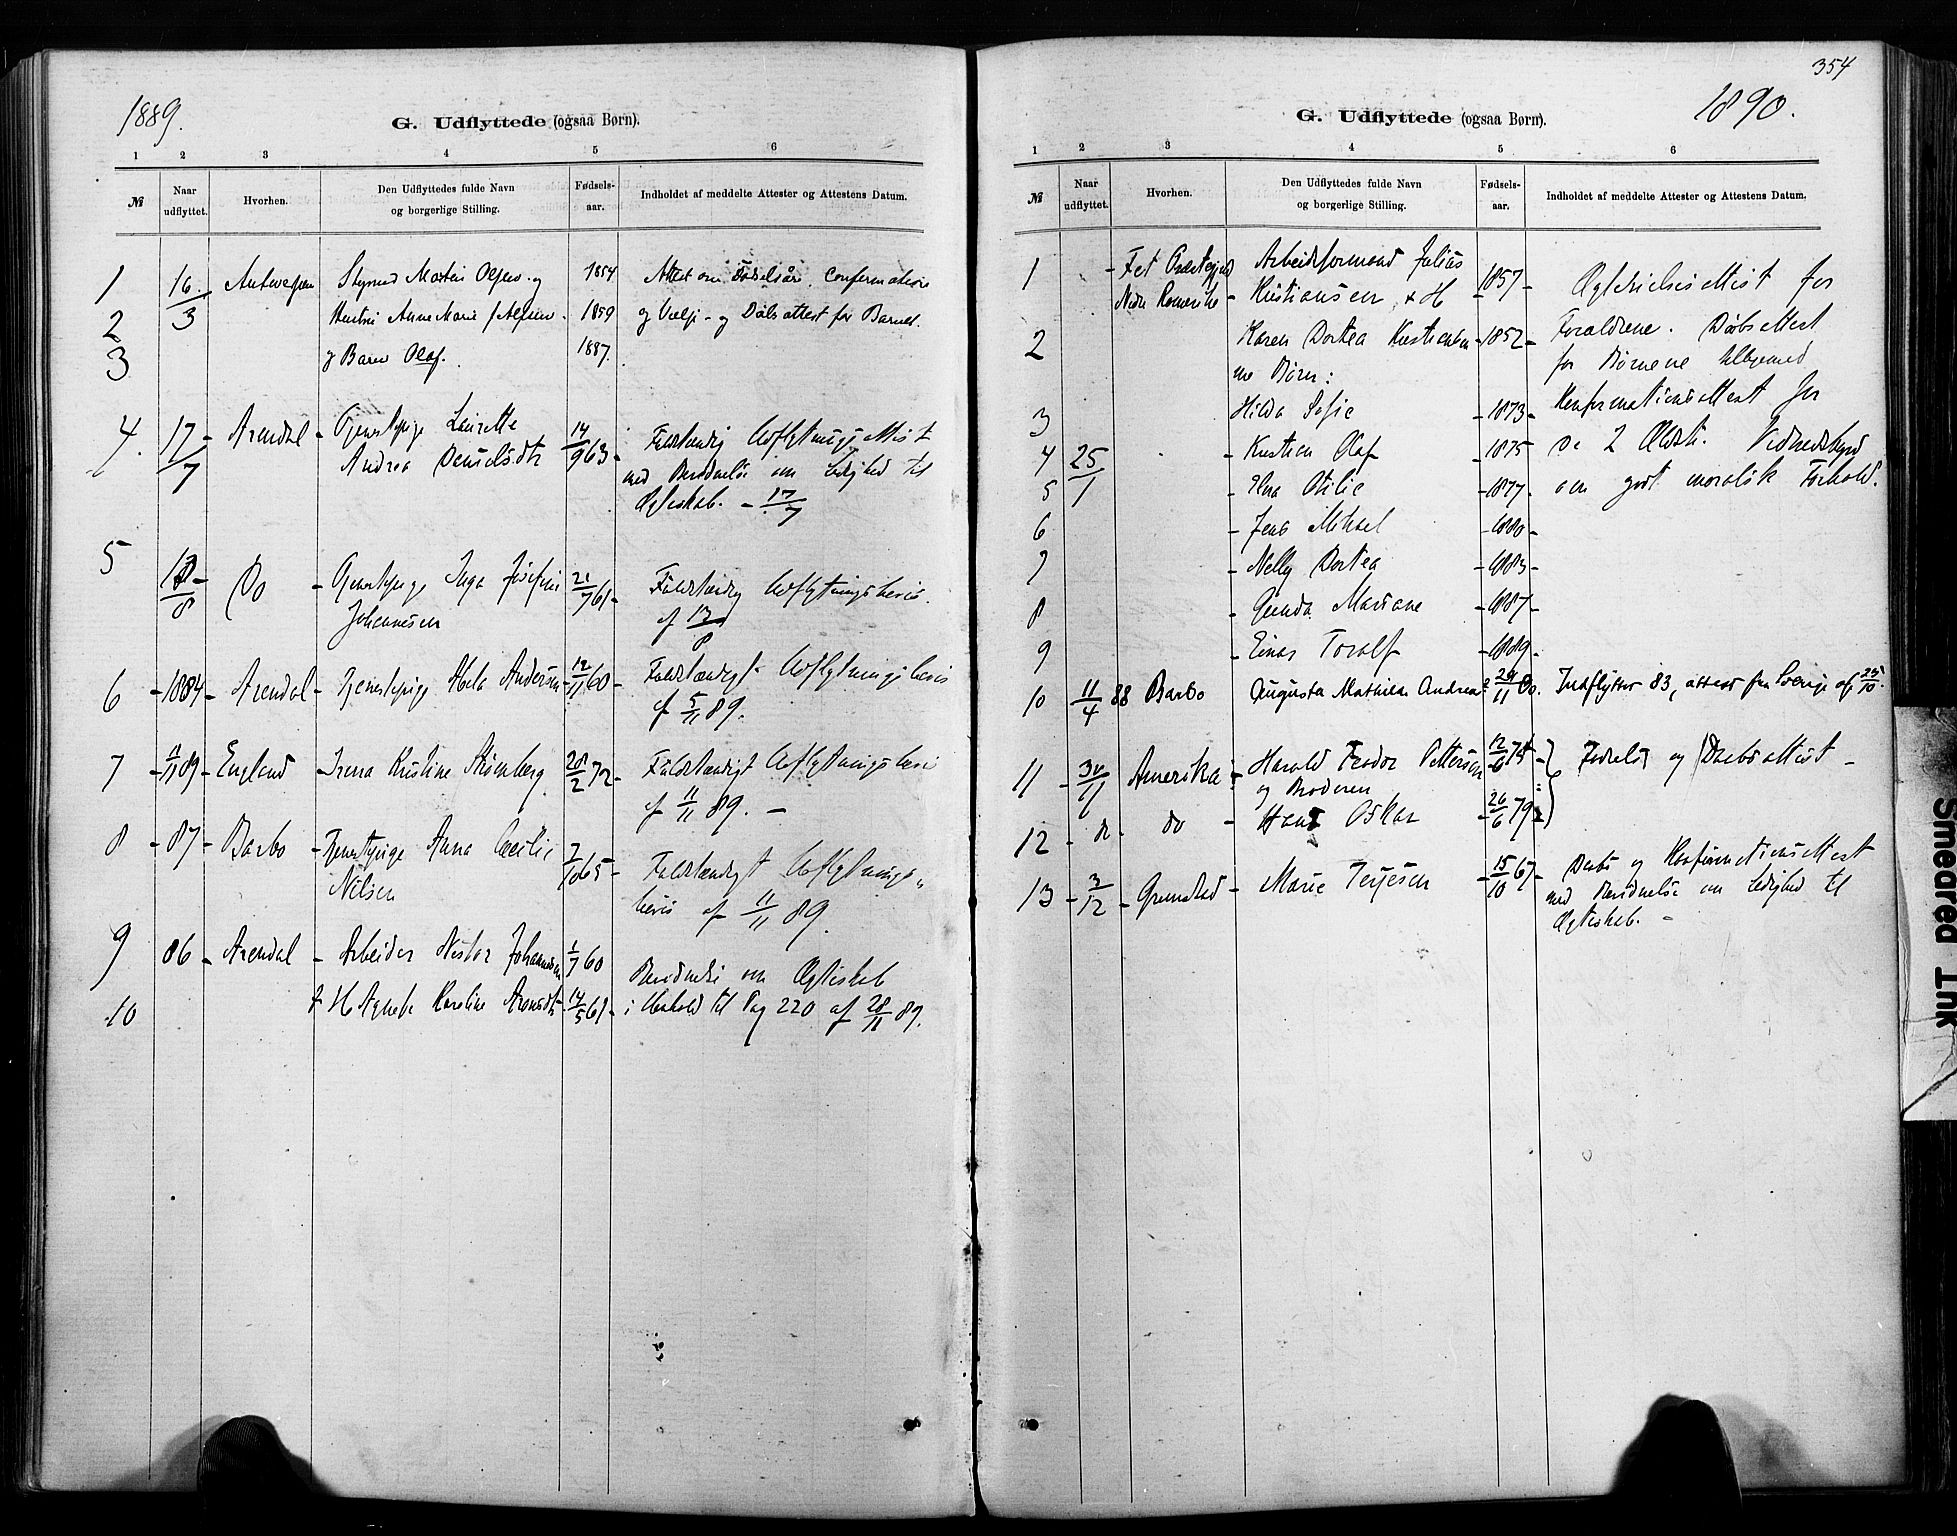 354
1889.
G. Udflyttede (ogsaa Børn).
1 2 3 4 5 6
№ Naar udflyttet. Hvorhen. Den Udflyttedes fulde Navn og borgerlige Stilling. Fødsels-aar. Indholdet af meddelte Attester og Attestens Datum.
1 16/3 Antwerpen Styrmd Martin Olsen og 1854 Attest om Fødselsår, Confirmation
2 Hustru Anne Marie 1859 og Vielse- og Dåbsattest for Barnet.
3 og Barn Olaf. 1887.
4. 17/7 - Arendal - Tjenestepige Laurette 14/9 63 - Fuldstændig Udflytningsattest
Andrea Danielsdtr med Bevidnelse om Ledighed til
Ægteskab. - 17/7
5 13/8 - Do - Tjenestepige Inga Josefine 21/7 61 - Fuldstændig Udflytningsbevis
Johannesen af 13/8
6 - 1884 - Arendal - Tjenestepige Andersen 12/11 60 - Fuldstændigt Udflytningsbevis
af 5/11 89.
7 - 11/11 89 - England - Irena Kristine 28/2 72 - Fuldstændigt Udflytningsbevis
af 11/11 89. -
8 - 87 - Barbo - Tjenestepige Anna Cecilie 7/10 65 - Fuldstændigt Udflytnings„
Nilsen bevis af 11/11 89.
9 86 - Arendal - Arbeider Nestor Johannesen 1/7 60 Bevidnelse om Ægteskab
10 & H Agnete Karoline 14/5 61 - i Henhold til Pag 220 af 28/11 89.
1890.
G. Udflyttede (ogsaa Børn).
1 2 3 4 5 6
№ Naar udflyttet. Hvorhen. Den Udflyttedes fulde Navn og borgerlige Stilling. Fødsels-aar. Indholdet af meddelte Attester og Attestens Datum.
1 - Fet Præstegjeld Arbeidsformand Julius
Nedre Romerike - Kristiansen & H - 1857 - Ægtevielsesattest for
2 Karen Dortea Kristiansen - 1852 - Forældrene. Dåbsattest
Børn: for Børnene tilligemed
3 Hilda Sofie - 1873 - Konfirmationsattest for
4 25/1 - Kristian Olaf - 1875 de 2 Ældste. Vidnesbyrd
5 - Elna Otilie - 1877 - om godt moralsk Forhold.
6 - Jens Mikael - 1880 -
7 - Nelly Dortea - 1883 -
8 - Gunda Mariane - 1887 -
9 - Einar Toralf - 1889 -
10 11/4 88 Barbo Augusta Mathilda 29/11 60. Indflyttet 83, attest fra Sverige af 25/10.
11 - 30/11 Amerika - Harald Teodor Pettersen 12/6 75 - Fødsels og Daabsattest -
og Broderen
12 - do - do - Hans Oskar - 26/6 79
13 - 3/12 - Grimstad - Marie Terjesen - 15/10 67 - Daabs og Konfirmationsattest
med Bevidnelse om Ledighed til
Ægteskab. -
Smeared Ink